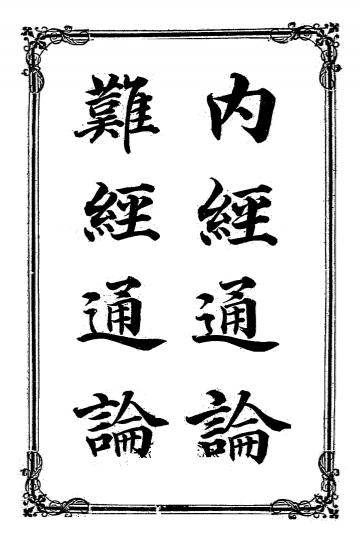 內經通論
難經通論